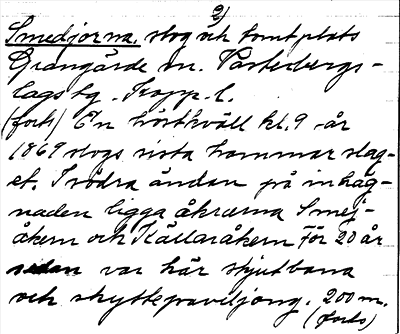 2)
Smedjorna. slog och tomtplats
Grangärde sn. Västerbergs-
lags tg. Kopp. l.
(forts) En höstkväll kl. 9 -år
1869 slogs sista hammar slag-
et. I södra ändan på inhäg-
naden ligga åkrarna Smej-
åkern och Källaråkern För 20 år
sedan var här skjutbana
och skyttepaviljong. 200 m.
(forts)